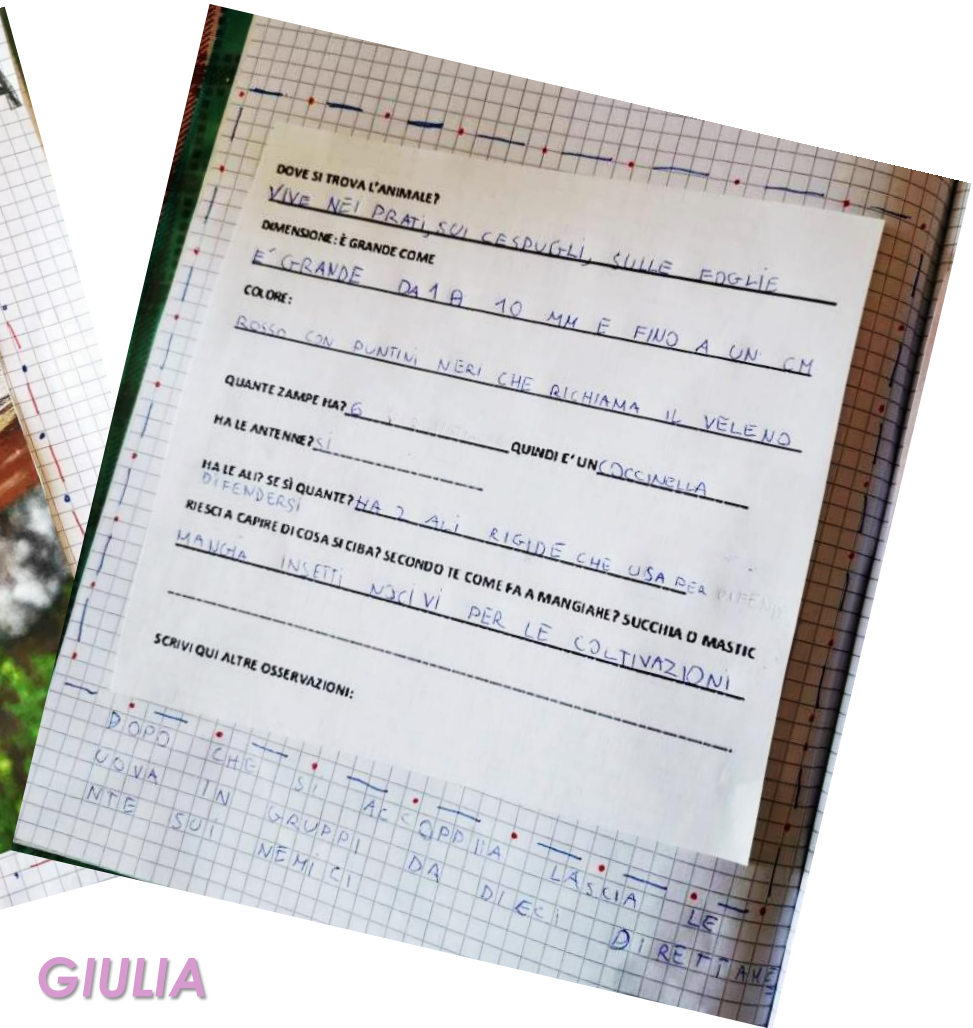 DOVE SI TROVA L'ANIMALE?
VIVE NEI PRATI, SUI CESPUGLI, SULLE FOGLIE
DIMENSIONE: È GRANDE COME
E' GRANDE DA 1 A 10 MM E FINO A UN CM
COLORE:
ROSSO CON PUNTINI NERI CHE RICHIAMA IL VELENO
QUANTE ZAMPE HA? 6 QUINDI E' UN COCCINELLA
HA LE ANTENNE? SÌ
HA LE ALI? SE SÌ QUANTE? HA 2 ALI RIGIDE CHE USA PER
DIFENDERSI
RIESCI A CAPIRE DI COSA SI CIBA? SECONDO TE COME FA A MANGIARE? SUCCHIA O MASTIC
MANGIA INSETTI NOCIVI PER LE COLTIVAZIONI
SCRIVI QUI ALTRE OSSERVAZIONI:
DOPO CHE SI ACCOPPIA LASCIA LE
UOVA IN GRUPPI DA DIECI DIRETTAME
NTE SUI NEMICI
GIULIA